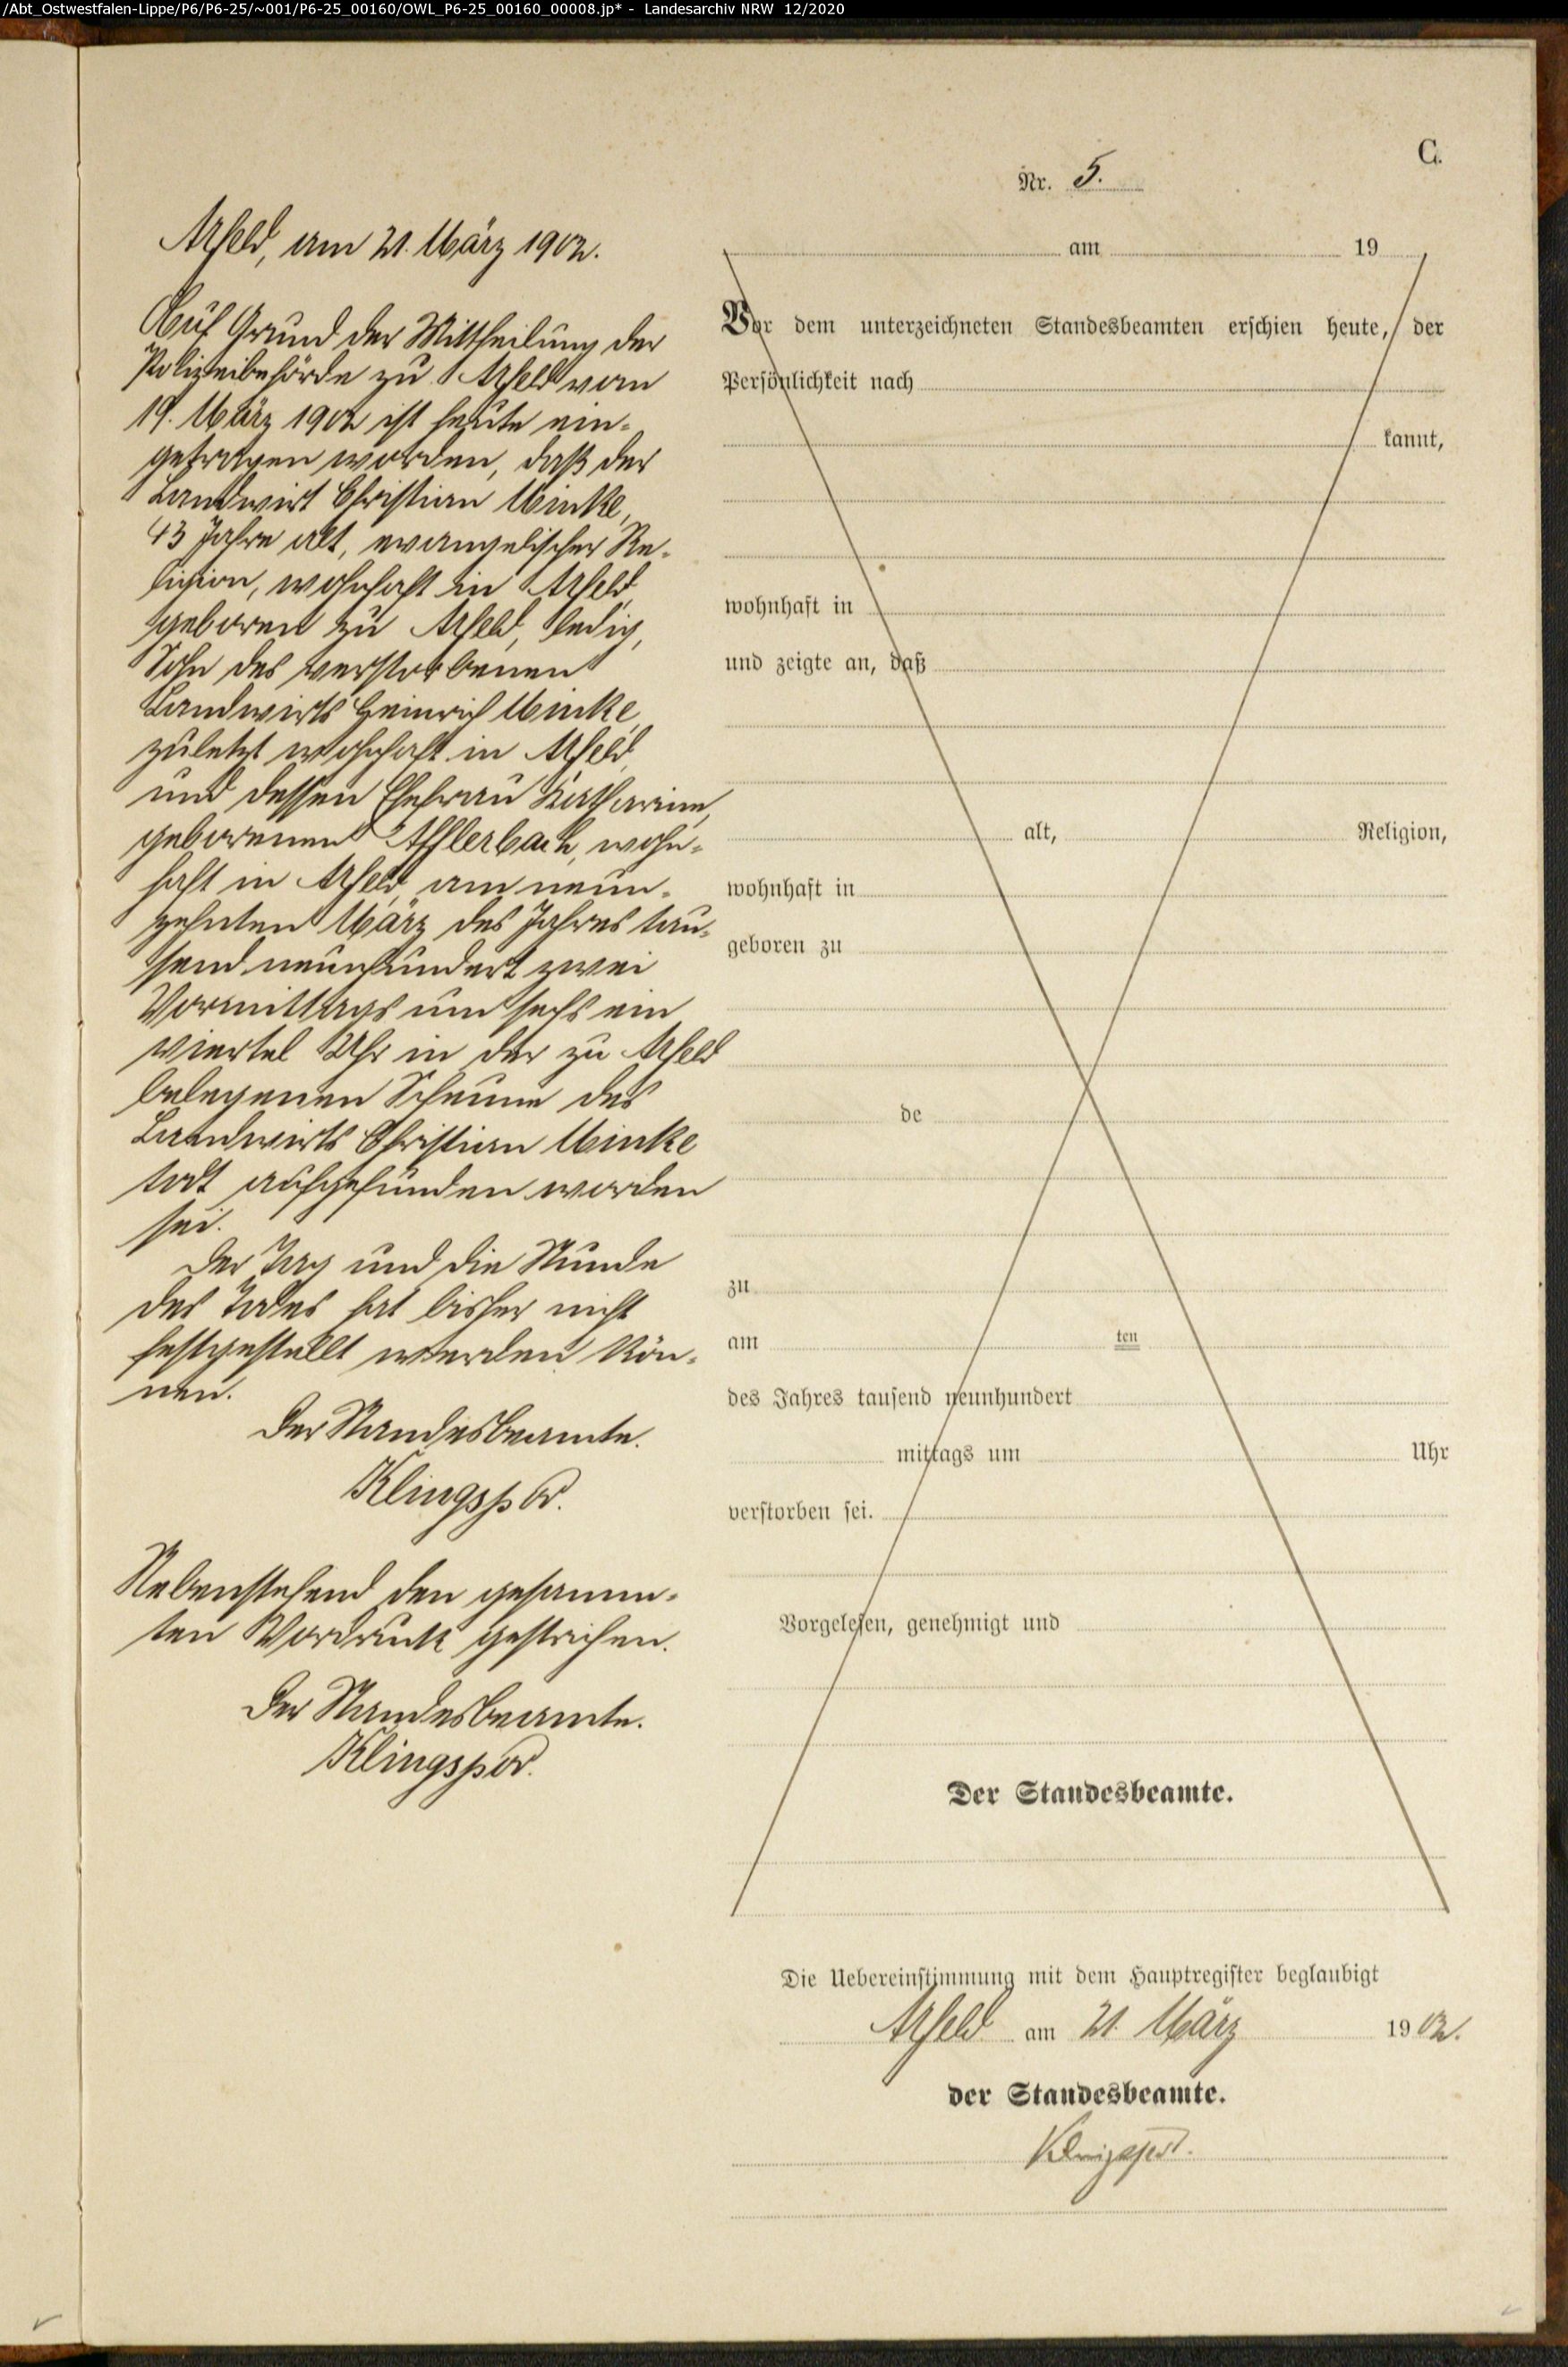 /Abt_Ostwestfalen-Lippe/P6/P6-25/~001/P6-25_00160/OWL_P6-25_00160_00008.jp* - Landesarchiv NRW 12/2020
C.
Nr. 5.
Arfeld, am 21. März 1902.
Auf Grund der Mittheilung der
Polizeibehörde zu Arfeld vom
19. März 1902 ist heute ein-
getragen worden, daß der
Landwirt Christian Minke,
43 Jahre alt, evangelischer Re-
ligion, wohnhaft in Arfeld,
geboren zu Arfeld, ledig,
Sohn des verstorbenen
Landwirts Heinrich Minke,
zuletzt wohnhaft in Arfeld,
und dessen Ehefrau Katharine,
geborenen Afflerbach, wohn-
haft in Arfeld, am neun-
zehnten März des Jahres tau-
send neunhundert zwei
Vormittags um sechs ein
viertel Uhr in der zu Arfeld
belegenen Scheune des
Landwirts Christian Minke
todt aufgefunden worden
sei.
Der Tag und die Stunde
des Todes hat bisher nicht
festgestellt werden kön-
nen.
Der Standesbeamte.
Klingspor.
Nebenstehend den gesamm-
ten Vordruck gestrichen.
Der Standesbeamte.
Klingspor.
am 19
Vor dem unterzeichneten Standesbeamten erschien heute, der
Persönlichkeit nach
kannt,
wohnhaft in
und zeigte an, daß
alt, Religion,
wohnhaft in
geboren zu
de
zu
am ten
des Jahres tausend neunhundert
mittags um Uhr
verstorben sei.
Vorgelesen, genehmigt und
Der Standesbeamte.
Die Uebereinstimmung mit dem Hauptregister beglaubigt
Arfeld am 21. März 1902.
der Standesbeamte.
Klingspor.